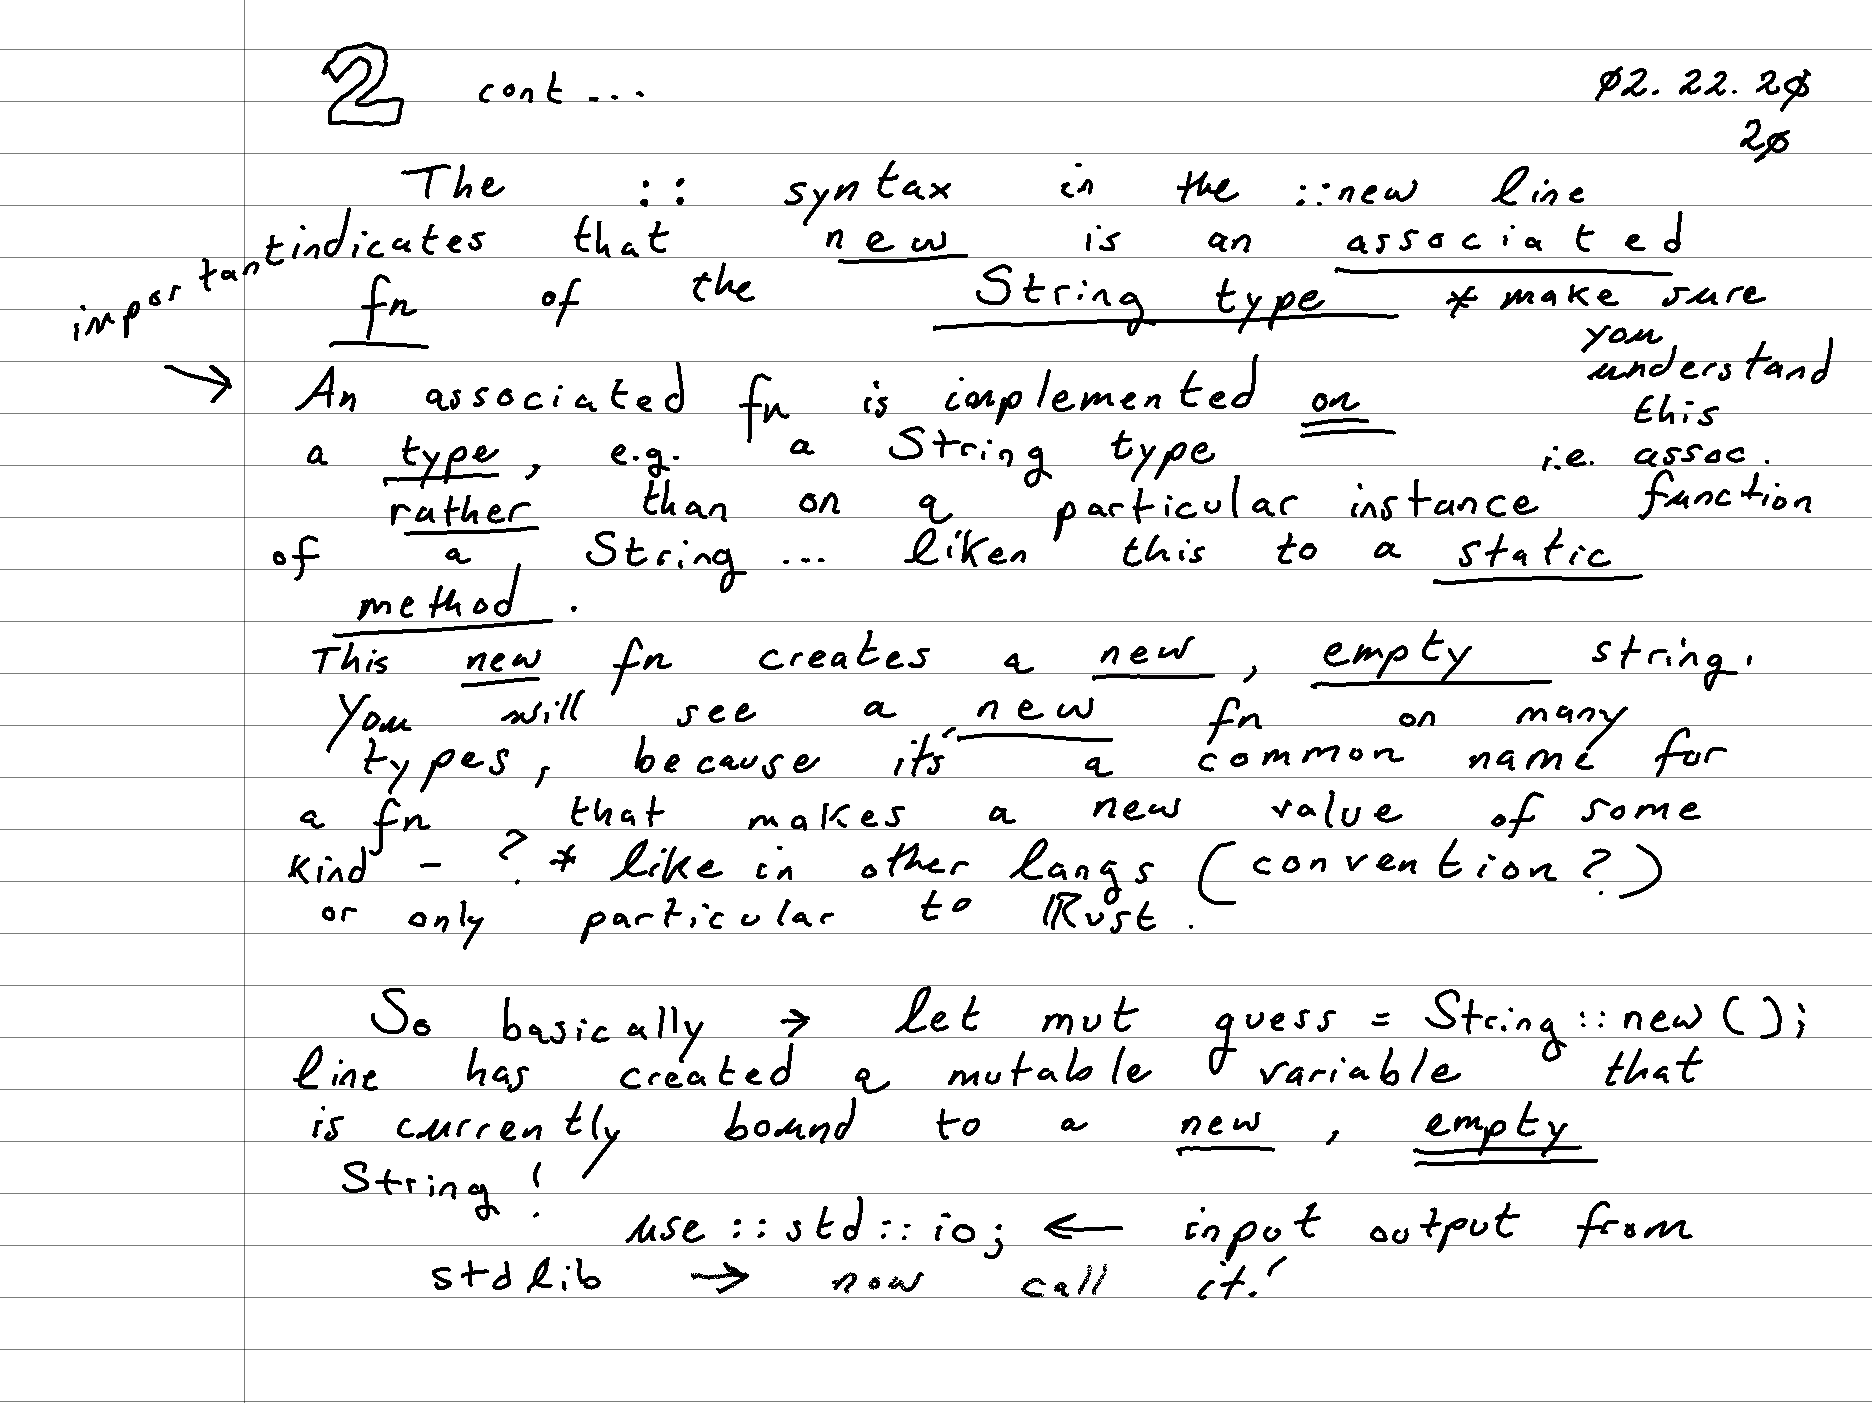 2 cont... 02.22.20
20
The :: syntax in the ::new line
indicates that new is an associated
important
fn of the String type * make sure
you
understand
this
i.e. assoc.
function
→ An associated fn is implemented on
a type, e.g. a String type
rather than on a particular instance
of a String ... liken this to a static
method.
This new fn creates a new, empty string.
You will see a new fn on many
types, because it's a common name for
a fn that makes a new value of some
kind - ? * like in other langs (convention?)
or only particular to Rust.
So basically → let mut guess = String::new();
line has created a mutable variable that
is currently bound to a new, empty
String!
use ::std::io; ← input output from
stdlib → now call it!